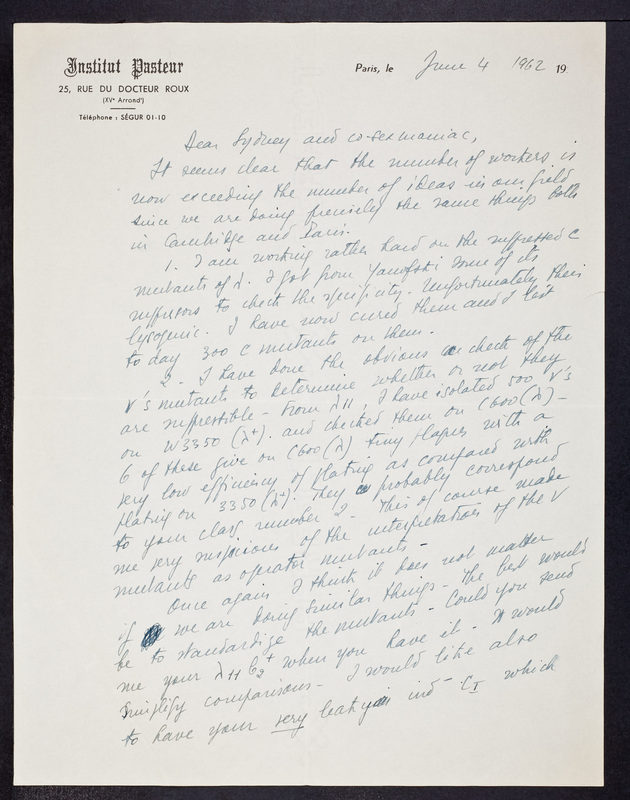 Institut Pasteur
25, RUE DU DOCTEUR ROUX
(XVe Arrondt)
Téléphone : SÉGUR 01-10
Paris, le June 4 1962 19
Dear Sydney and co-sexmaniac,
It seems clear that the number of workers is
now exceeding the number of ideas in our field
since we are doing precisely the same things both
in Cambridge and Paris.
1. I am working rather hard on the suppressed C
mutants of λ. I got from Yanofski some of its
suppressors to check the specificity. Unfortunately their
lysogenic. I have now cured them and I test
to day 300 C mutants on them.
2. I have done the obvious check of the
V's mutants to determine whether or not they
are supressible - From λ11, I have isolated 500 V's
on W3350 (λ+) and checked them on C600(λ) -
6 of these give on C600(λ) tiny plaques with a
very low efficiency of plating as compared with
plating on 3350(λ+). They probably correspond
to your class number 2 - This of course made
me very suspicious of the interpretations of the V
mutants as operator mutants -
Once again I think it does not matter
if we are doing similar things - The best would
be to standardize the mutants - Could you send
me your λ11 b2+ when you have it - It would
simplify comparisons - I would like also
to have your very leaky ind- CI which